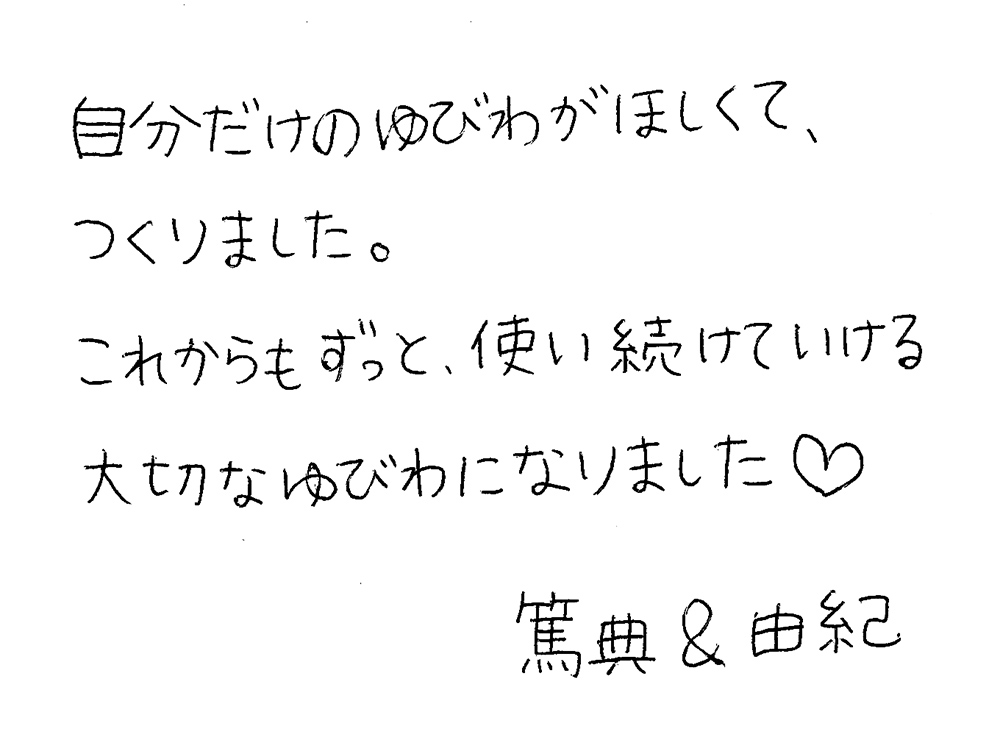 自分だけのゆびわがほしくて、
つくりました。
これからもずっと、使い続けていける
大切なゆびわになりました♡
篤典&由紀